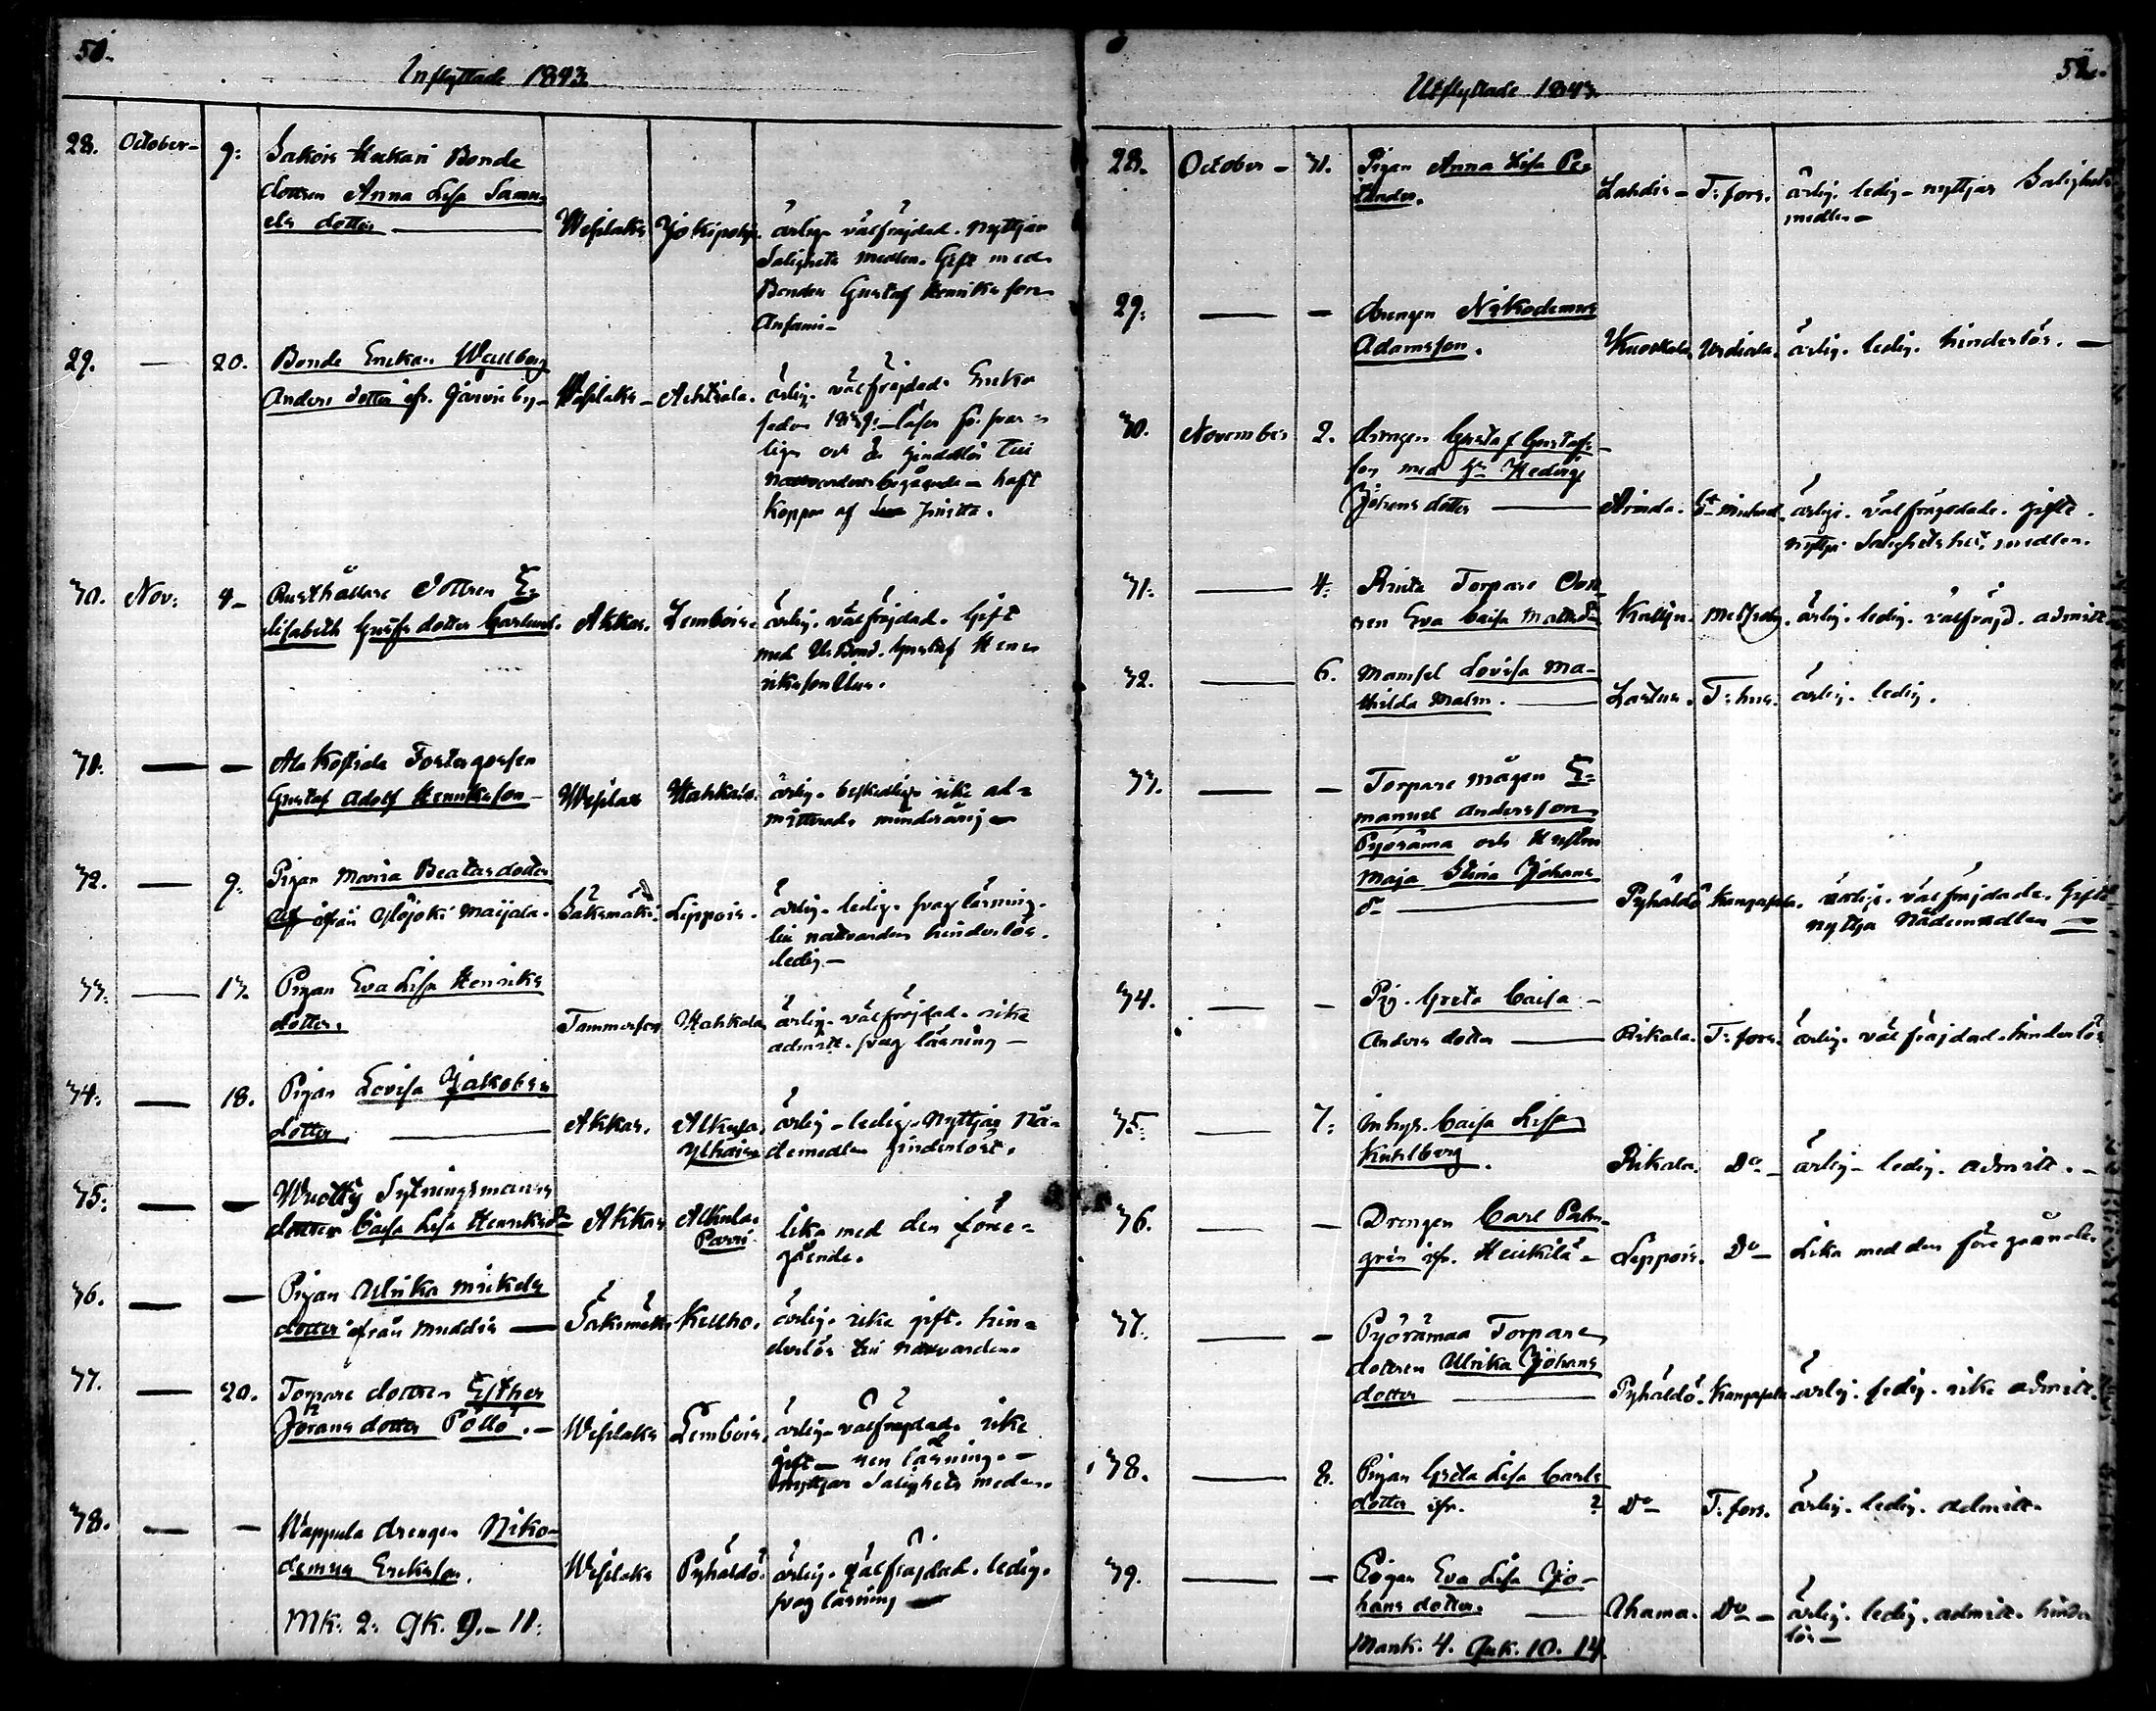 50.
Inflyttade 1843
28. October - 9: Sakois Bonde
dottren Anna Lisa Samu=
els dotter Wesilaks Jokipohj. ärlig. välfräjdad. Nyttjar
Salighets medlen. Gift med
Bonden Gustaf Henriksson
Anfami -
29. — 20. Bonde Enckan Wallberg
Anders dotter ifr. Järvis by - Wesilaks - Achtiala. ärlig. välfräjdad. Encka
sedan 1839. - läser
ligen och är till
nattvardens begående - haft
koppor af
30. Nov: 4 - Rusthållare dottren E=
lisabeth Gustfs dotter Akkas. Lembois. ärlig. välfräjdad. Gift
med Bond. Gustaf Hen=
riksson
31. — — Ala Kostiala Fostergossen
Gustaf Adolf Henriksson - Wesilax Hahkala. ärlig. beskedlig icke ad=
mitterad. minderårig -
32. — 9. Pigan Maria Beatas dotter
ifrån Ylöjoki Maijala. Säksmäki. Leppois. ärlig. ledig. svag läsning.
till nattvarden hinderlös.
ledig -
33. — 13. Pigan Eva Lisa Henriks
dotter. Tammerfors Hahkala ärlig. välfräjdad. icke
admitt. svag läsning -
34. — 18. Pigan Lovisa Jakobs
dotter. Akkas. Alkula. ärlig - ledig. Nyttjar Nå=
Ylhäis demedlen hinderlöst.
35. — — Wuotty Sytningsmans
dottren Caisa Lisa Henriksdr Akkas Alkula. lika med den före=
Parri gående.
36. — — Pigan Ulrika Mickels
dotter ifrån Muddis — Säksmäki Kellho. ärlig. icke gift. hin=
derlös till nattvarden
37. — 20. Torpare dottren Esther
Jörans dotter Pöllö. - Wesilaks Lembois. ärlig - välfräjdad. icke
gift - ren läsning. -
nyttjar Salighets medlen.
38. — — Wappula drengen Niko=
demus Ericksson. Wesilaks Pyhäldö. ärlig. välfräjdad. ledig.
svag läsning —
Mk: 2: Qk. 9. - 11:
52.
Utflyttade 1843.
28. October - 31. Pigan Anna Lisa Pe=
Lahdis - T: fors. ärlig. ledig - nyttjar Salighets
medlen -
29: — — drengen Nikodemus
Adamsson. Kuockala Urdiala. ärlig. ledig. hinderlös. —
30. November 2. drengen Gustaf Gustafs=
son med hu Hedvig
Johans dotter — Arinda. St Michael. ärliga. välfräjdade. gifte.
nyttja Salighets medlen.
31. — 4. Rinta Torpare dott=
ren Eva Caisa Matts dr Kulju. Messuby. ärlig. ledig. välfräjd. admitt.
32. — 6. Mamsel Lovisa Ma=
thilda Malm. — Lastus. T: hus. ärlig. ledig.
33. — — Torpare mågen E=
manuel Andersson
Pyörämä och Hustrun
Maja Stina Johans
dr — Pyhäldö Kangasala. ärlige. välfräjdade. Gifte
nyttja Nådemedlen —
34. — — Pig. Greta Caisa -
Anders dotter — Pirkala. T: fors. ärlig. välfräjdad. hinderlös
35. — 7. inhys. Caisa Lisa
Kuhlberg. Pirkala. Do - ärlig - ledig. admitt. -
36. — — Drengen Carl Palm=
grén ifr. Heickilä - Leppois. Do - Lika med den föregående
37. — — Pyörämaa Torpare
dottren Ulrika Johans
dotter — Pyhäldö. Kangasala ärlig. ledig. icke admitt.
38. — 8. Pigan Greta Lisa Carls
dotter ifr. ? Do - T: fors. ärlig. ledig. admitt.
39. — — Pigan Eva Lisa Jo=
hans dotter. — Uhama. Do - ärlig. ledig. admitt. hinder
lös -
Mank. 4. Quk. 10. 14.